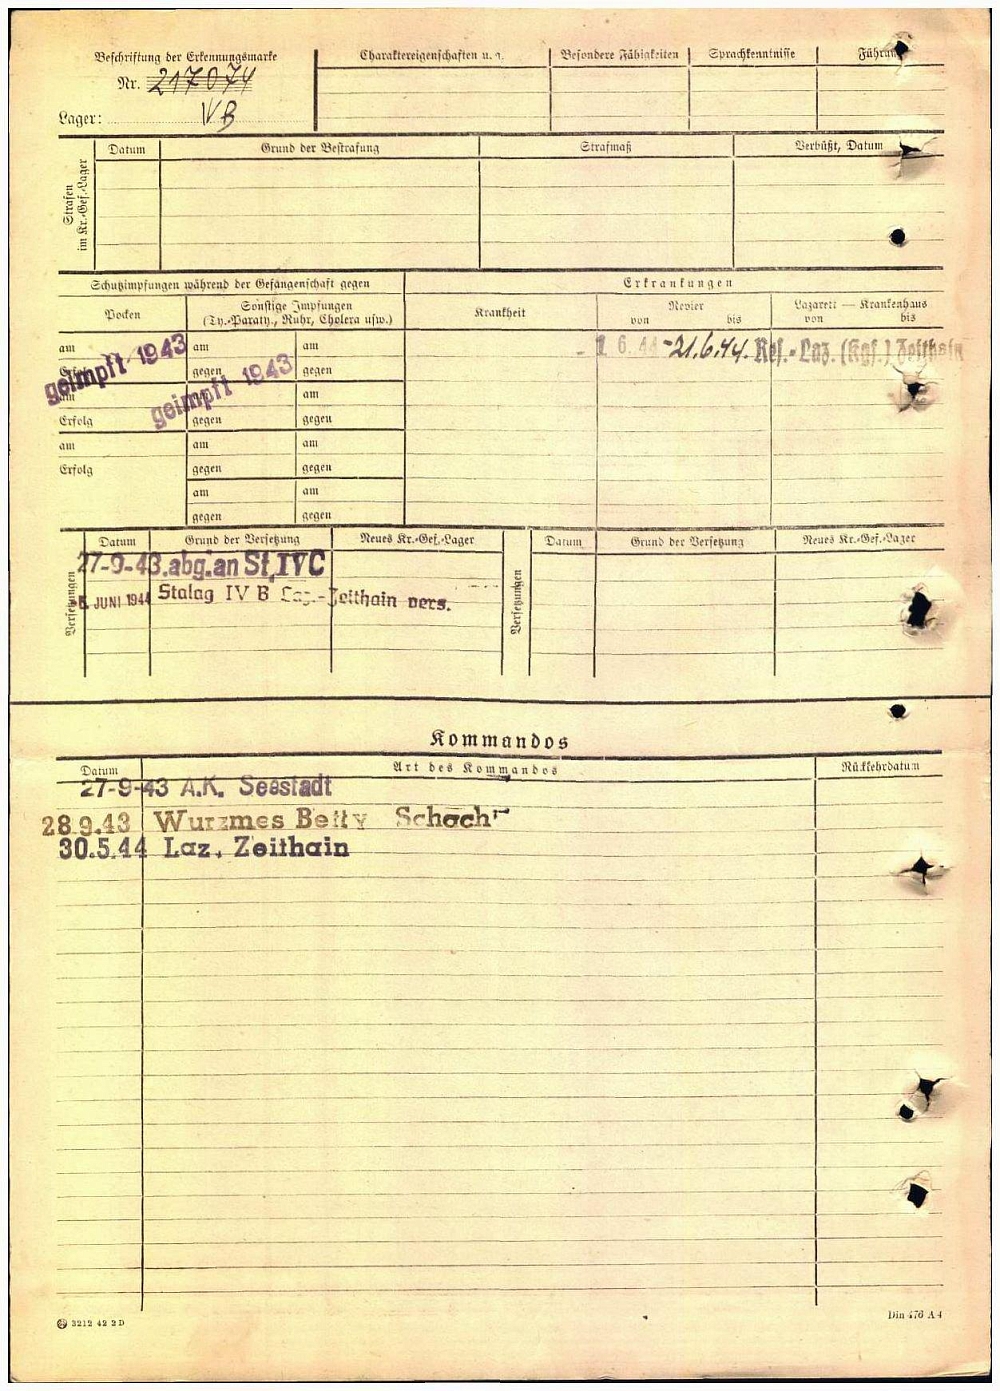 Beschriftung der Erkennungsmarke
Nr. 217074
Lager: IVB
Charaktereigenschaften u. a. Besondere Fähigkeiten Sprachkenntnisse Führung
Strafen im Kr.-Gef.-Lager
Datum Grund der Bestrafung Strafmaß Verbüßt, Datum
Schutzimpfungen während der Gefangenschaft gegen Erkrankungen
Pocken Sonstige Impfungen Krankheit Revier Lazarett — Krankenhaus
(Ty.-Paraty., Ruhr, Cholera usw.) von bis von bis
am am am
Erfolg gegen gegen
geimpft 1943
geimpft 1943
1 6. 44 -21.6.44. Res.-Laz. (Kgf.) Zeithain
am am am
Erfolg gegen gegen
am am am
Erfolg gegen gegen
am am
gegen gegen
Versetzungen
Datum Grund der Versetzung Neues Kr.-Gef.-Lager
Versetzungen
Datum Grund der Versetzung Neues Kr.-Gef.-Lager
27-9-43. abg. an St. IVC
JUNI 1944 Stalag IV B Laz.-Zeithain vers.
Kommandos
Datum Art des Kommandos Rückkehrdatum
27-9-43 A.K. Seestadt
28.9.43 Wurzmes Betty
30.5.44 Laz. Zeithain
3212 42 2D
Din 476 A4